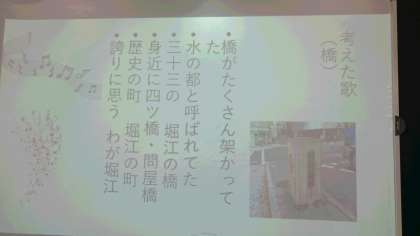 考えた歌
(橋)
•橋がたくさん架かって
た
•水の都と呼ばれてた
•三十三の 堀江の橋
•身近に四ツ橋・問屋橋
•歴史の町 堀江の町
•誇りに思う わが堀江